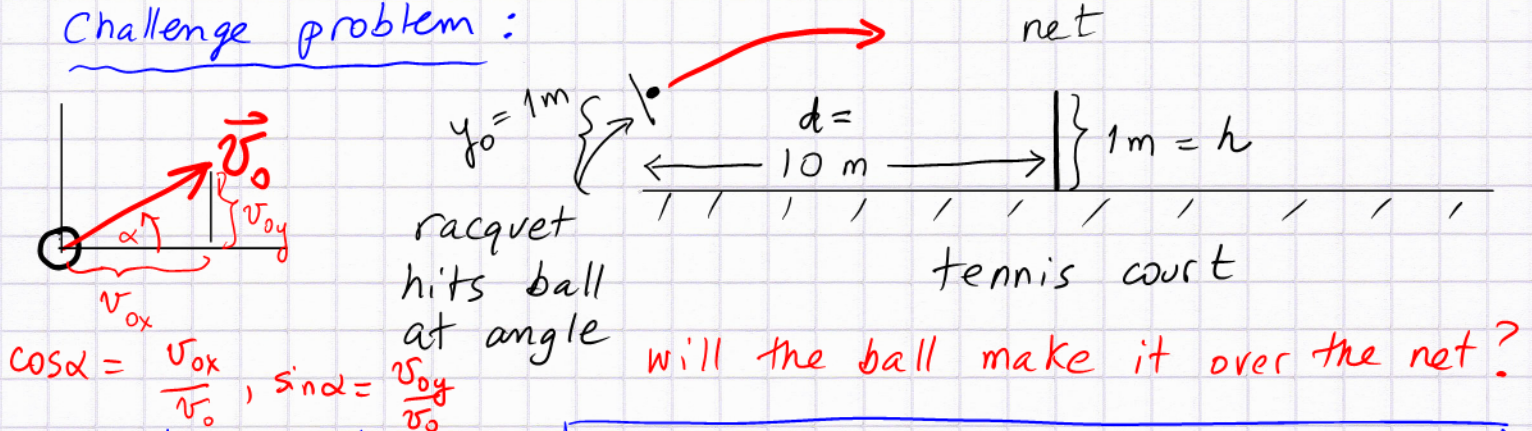 Challenge problem :
net
y₀ = 1m
d =
10 m
1m = h
v⃗₀
v₀y
α
v₀x
racquet
hits ball
at angle
tennis court
cosα = v₀x/v₀ , sinα = v₀y/v₀
will the ball make it over the net?